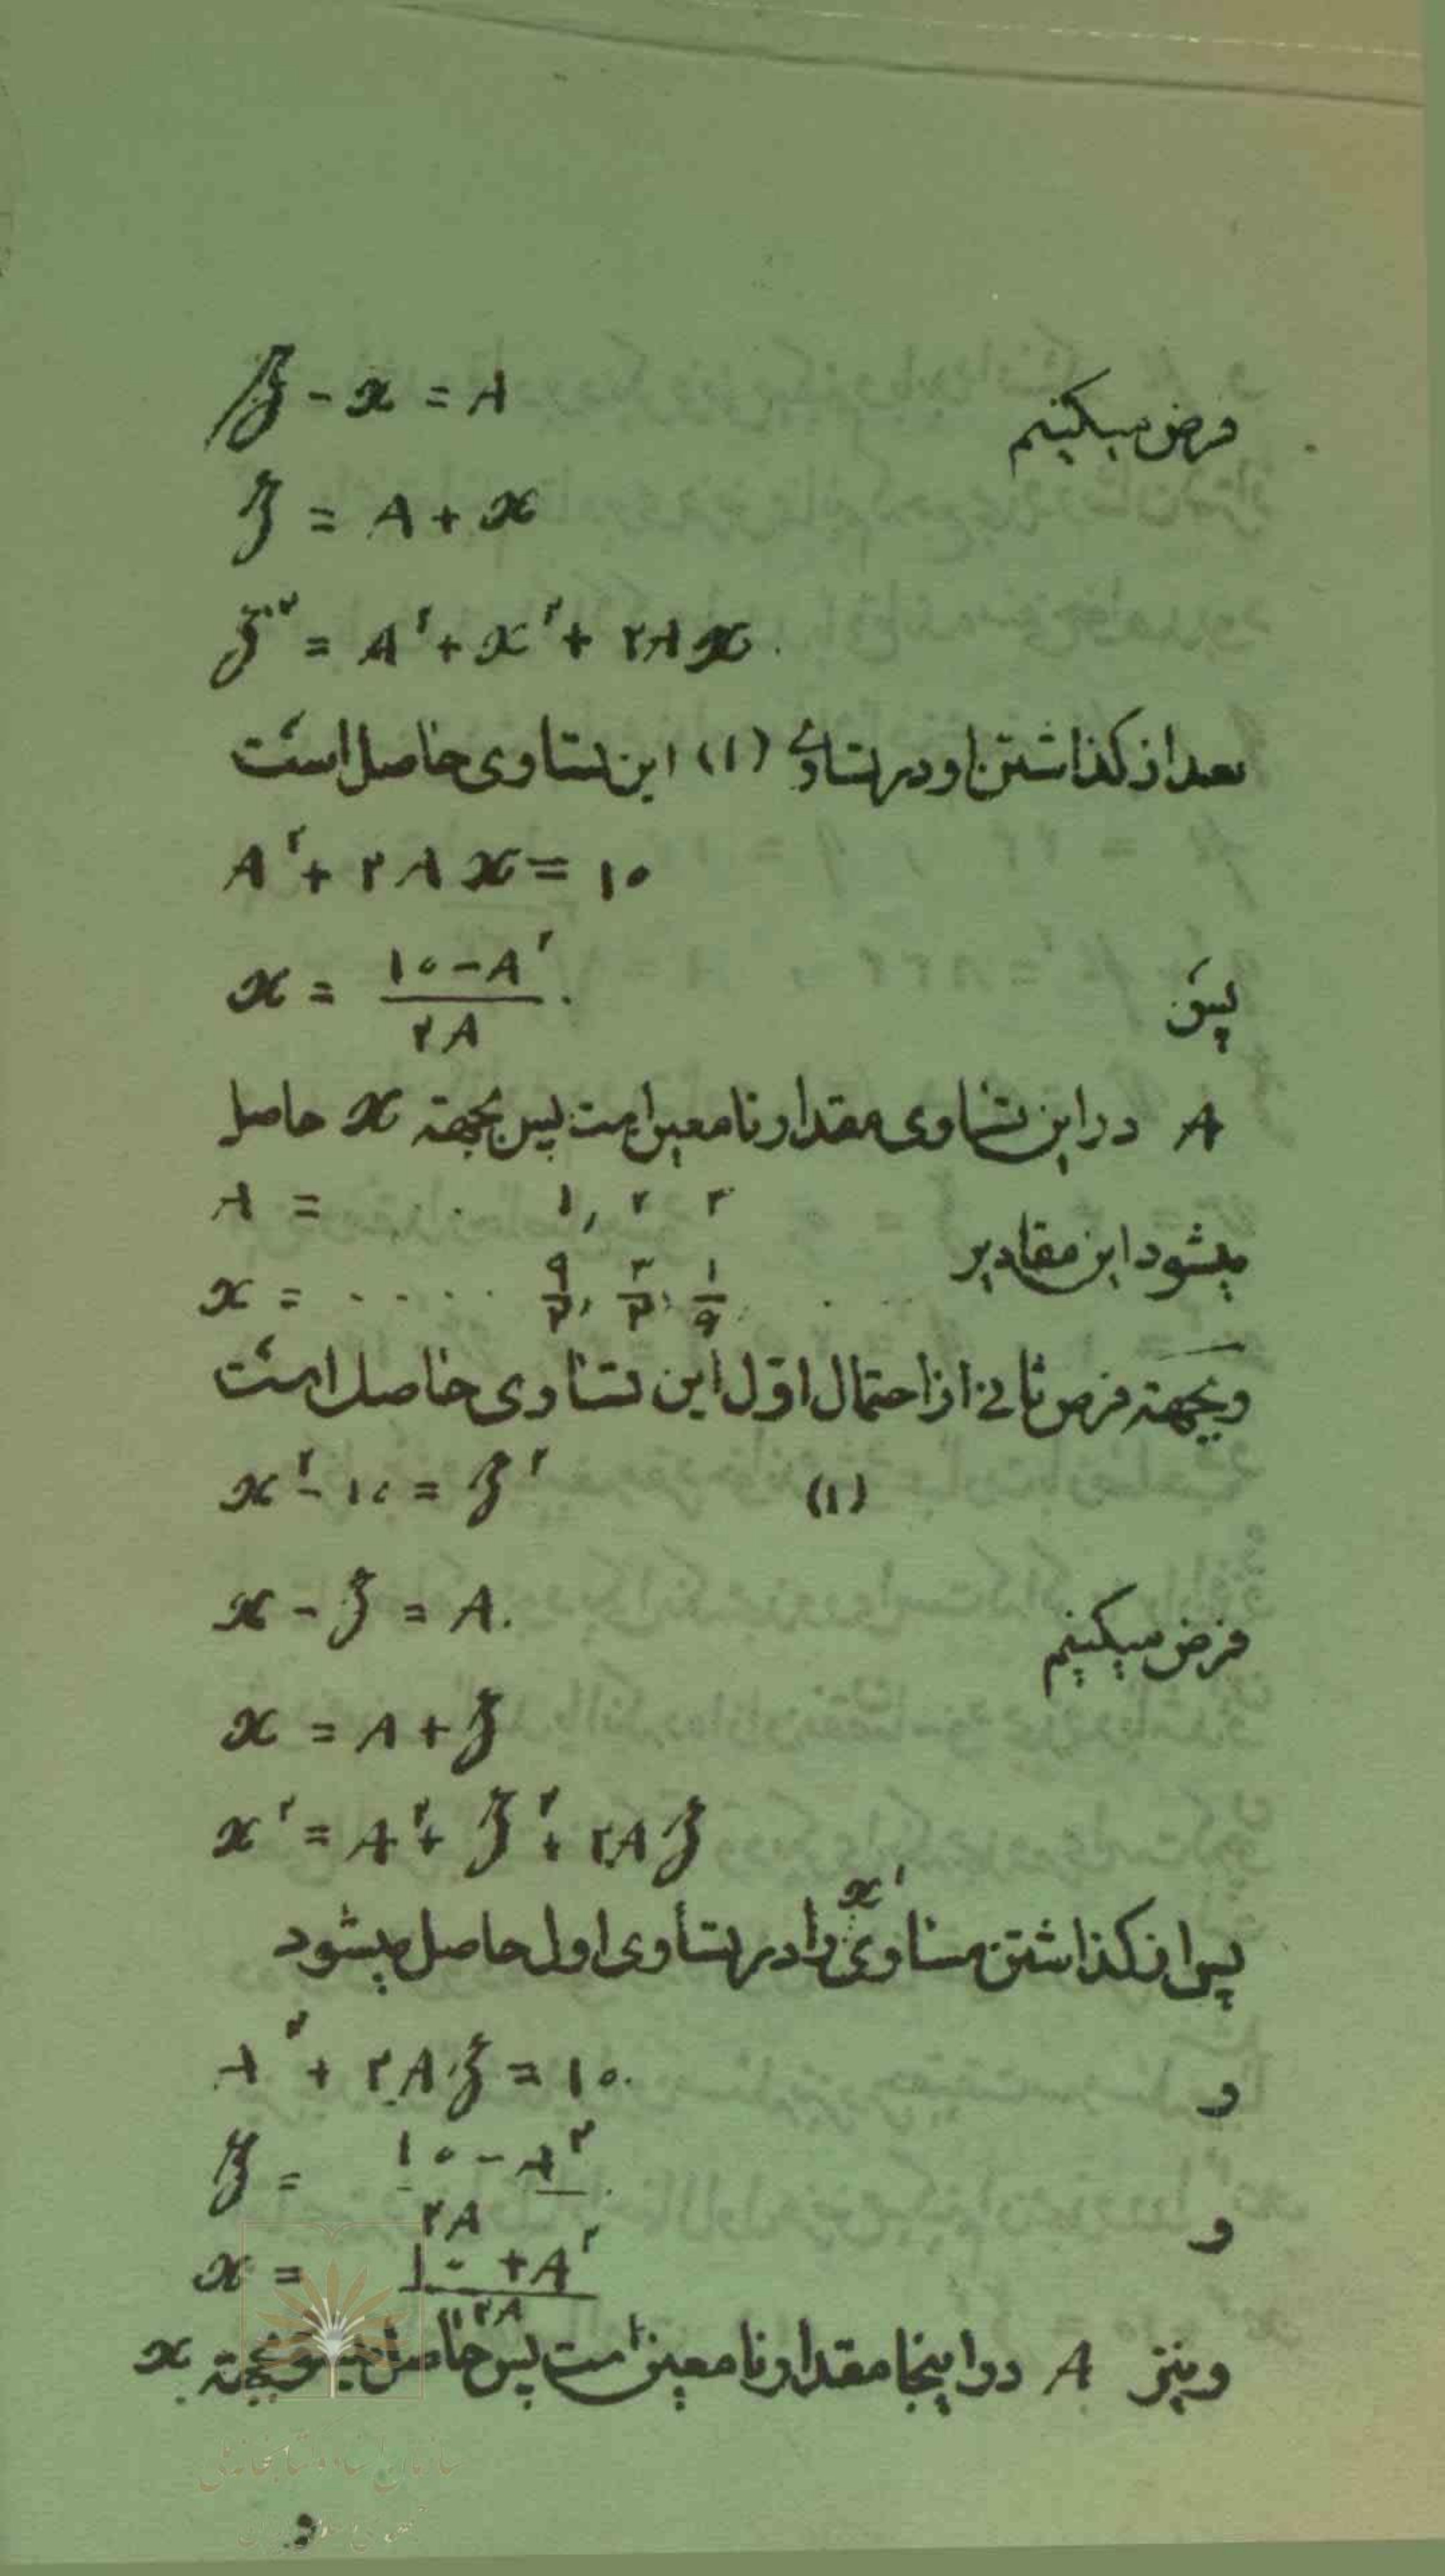 فرض میکنیم z - x = A
z = A + x
z² = A² + x² + ۲Ax.
بعد از گذاشتن او در تساوی (۱) این تساوی حاصل است
A² + ۲Ax = ۱۰
پس x = (۱۰ - A²)/۲A.
A در این تساوی مقدار نامعین است پس بجهته x حاصل
A = . ۱, ۲ ۳
میشود این مقادیر
x = ..... ۹/۲, ۳/۲, ۱/۶
وبجهته فرض ثانی از احتمال اوّل این تساوی حاصل است
x² - ۱۰ = z² (۱)
فرض میکنیم x - z = A.
x = A + z
x² = A² + z² + ۲Az
پس از گذاشتن مساوی x² را در تساوی اول حاصل میشود
و A² + ۲Az = ۱۰.
و z = (۱۰ - A²)/۲A.
x = (۱۰ + A²)/۲A
ونیز A در اینجا مقدار نامعین است پس حاصل میشود بجهته x